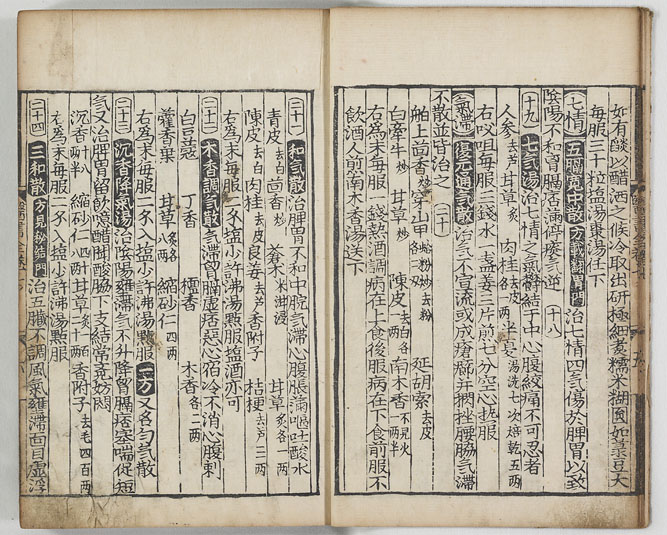 如有醶以醋洒之候冷取出研極細煑糯米糊圎如菉豆大
每服三十粒塩湯棗湯任下
七情 五膈寛中散 方載翻胃門 治七情四氣傷於脾胃以致
陰陽不和胷膈痞滿停痰氣逆 十八
十九 七气湯 治七情之氣欝結于中心腹絞痛不可忍者
人参 去芦 甘草 炙 肉桂 去皮各一兩 半夏 湯洗七次焙乾五兩
右㕮咀每服三錢水一盞姜三片煎七分空心热服
氣滯 復元通气散 治气不宣流或成瘡癤并閃挫腰脇气滯
不散並皆治之 二十
舶上茴香 炒 穿山甲 蛤粉炒去粉各二兩 延胡索 去皮
白牽牛 炒 甘草 炒 陳皮 去白各一兩 南木香 不見火一兩半
右爲末每服一錢熱酒調病在上食後服病在下食前服不
飲酒人煎南木香湯送下
二十一 和气散 治脾胃不和中脘气滯心腹脹滿嘔吐酸水
青皮 去白 茴香 炒 蒼术 米泔浸 甘草 炙各一兩
陳皮 去白 肉桂 去皮 良姜 去芦 香附子 桔梗 去芦三兩
右爲末每服二錢入塩少許沸湯點服塩酒亦可
二十二 木香調气散 气滯胷膈虛痞惡心宿冷不消心腹刺
白豆蔲 丁香 檀香 木香 各二兩
藿香葉 甘草 炙各八兩 縮砂仁 四兩
右爲末每服二錢入塩少許沸湯點服 一方 又名匀气散
二十三 沉香降氣湯 治陰陽壅滯气不升降胷膈痞塞喘促短
气又治脾胃留飲噫醋聞酸脇下支結常竟妨悶
沉香 一兩八 縮砂仁 四兩 甘草 炙十一兩 香附子 去毛四百兩
右爲末每服二錢入塩少許沸湯點服
二十四 三和散 方見秘結門 治五臓不調風氣壅滯面目虛浮